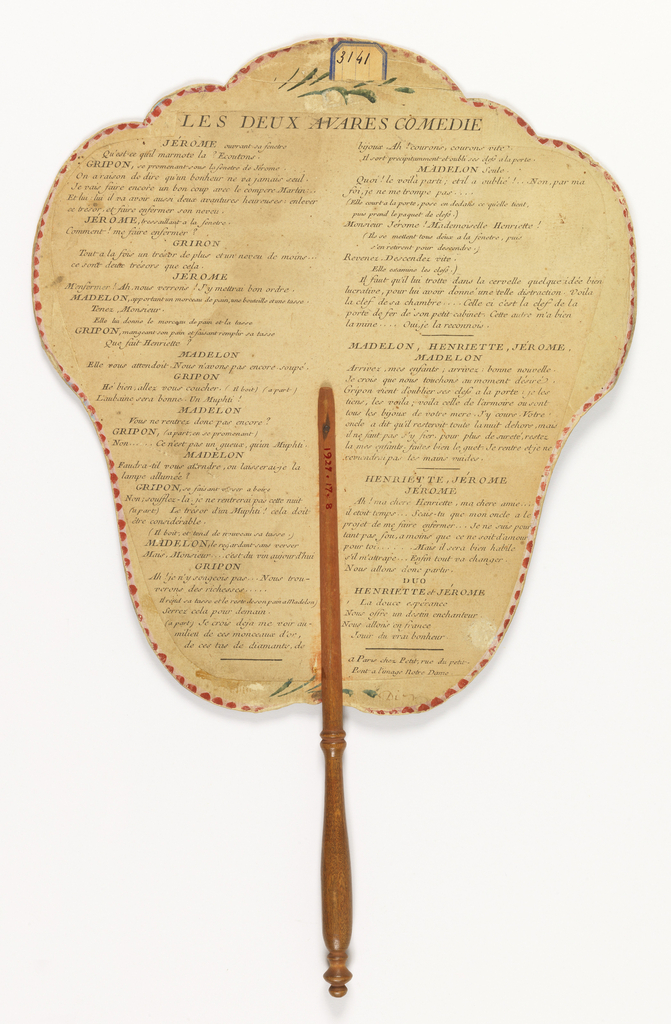 3141
LES DEUX AVARES COMEDIE
JÉROME ouvrant sa fenetre
Qu'est-ce qu'il marmote la ? Ecoutons.
GRIPON, se promenant sous la fenetre de Jérome
On a raison de dire qu'un bonheur ne va jamais seul.
Je vais faire encore un bon coup avec le compere Martin...
Et lui, lui il va avoir aussi deux avantures heureuses: enlever
ce trésor, et faire enfermer son neveu.
JEROME, tressaillant a la fenetre.
Comment! me faire enfermer ?
GRIRON
Tout a la fois un trésor de plus et un neveu de moins...
ce sont deux trésors que cela.
JEROME
M'enfermer! Ah nous verrons! J'y mettrai bon ordre.
MADELON, apportant un morceau de pain, une bouteille et une tasse.
Tenez, Monsieur.
Elle lui donne le morceau de pain et la tasse
GRIPON, mangeant son pain et faisant remplir sa tasse
Que fait Henriette ?
MADELON
Elle vous attendoit. Nous n'avons pas encore soupé.
GRIPON
Hé bien, allez vous coucher. (Il boit) (a part)
L'aubaine sera bonne. Un Muphti!
MADELON
Vous ne rentrez donc pas encore ?
GRIPON, (a part, en se promenant)
Non.... Ce n'est pas un gueux, qu'un Muphti.
MADELON
Faudra-t-il vous attendre, ou laisserai-je la
lampe allumée ?
GRIPON, se faisant verser a boire
Non; soufflez-la; je ne rentrerai pas cette nuit
(a part) Le trésor d'un Muphti! cela doit
etre considérable.
(Il boit, et tend de nouveau sa tasse.)
MADELON, le regardant sans verser
Mais, Monsieur.... c'est du vin aujourd'hui
GRIPON
Ah! je n'y songeois pas... Nous trou-
verons des richesses....
Il rend sa tasse et le reste de son pain a Madelon)
Serrez cela pour demain.
(a part) Je crois deja me voir au-
milieu de ces monceaux d'or,
de ces tas de diamants, de
bijoux. Ah! courons, courons vite.
Il sort précipitamment et oublie ses clefs a la porte.
MADELON Seule.
Quoi! le voila parti; et il a oublié!... Non, par ma
foi, je ne me trompe pas....
(Elle court a la porte, pose en dedalis ce qu'elle tient,
puis prend le paquet de clefs.)
Monsieur Jerome! Mademoiselle Henriette!
(Ils se mettent tous deux a la fenetre, puis
s'en retirent pour descendre.)
Revenez. Descendez vite.
Elle examine les clefs.)
Il faut qu'il lui trotte dans la cervelle quelque idée bien
lucrative, pour lui avoir donné une telle distraction. Voila
la clef de sa chambre.... Celle ci c'est la clef de la
porte de fer de son petit cabinet. Cette autre m'a bien
la mine.... Oui je la reconnois.
MADELON, HENRIETTE, JEROME,
MADELON
Arrivez, mes enfants; arrivez: bonne nouvelle.
Je crois que nous touchons au moment désiré.
Gripon vient d'oublier ses clefs a la porte; je les
tiens, les voila; voila celle de l'armoire ou sont
tous les bijoux de votre mere. J'y cours. Votre
oncle a dit qu'il resteroit toute la nuit dehors, mais
il ne faut pas s'y fier: pour plus de sureté, restez
la, mes enfants, faites bien le guet. Je rentre et je ne
reviendrai pas les mains vuides.
HENRIETTE, JEROME
JÉROME
Ah! ma chere Henriette, ma chere amie...
il etoit temps... Sais-tu que mon oncle a le
projet de me faire enfermer... Je ne suis pour
tant pas fou, a moins que ce ne soit d'amour
pour toi..... Mais il sera bien habile
s'il m'attrape... Enfin tout va changer.
Nous allons donc partir.
DUO
HENRIETTE et JÉROME
La douce espérance
Nous offre un destin enchanteur.
Nous allons en france
Jouir du vrai bonheur.
a Paris chez Petit, rue du petit-
Pont a l'image Notre Dame.
1927.17.8